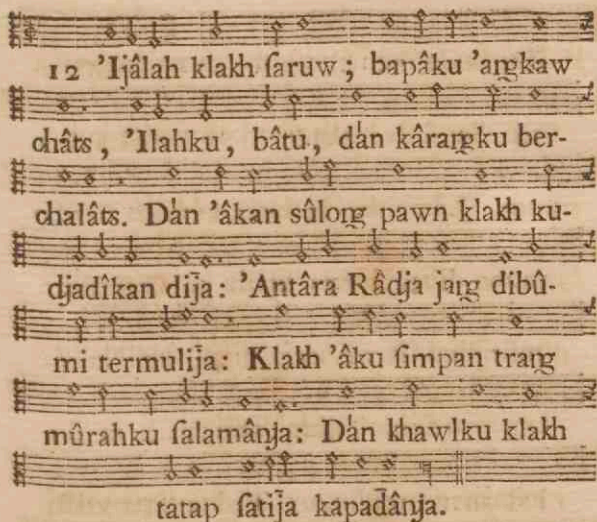 12 'Ijâlah klakh ſaruw ; bapâku 'angkaw
châts, 'Ilahku, bâtu, dán kârangku ber-
chalâts. Dán 'âkan sûlong pawn klakh ku-
djadîkan dij̄a: 'Antâra Râdja jang dibû-
mi termulij̄a: Klakh 'âku ſimpan trang
mûrahku ſalamânja: Dán khawlku klakh
tatap ſatij̄a kapad̄ânja.